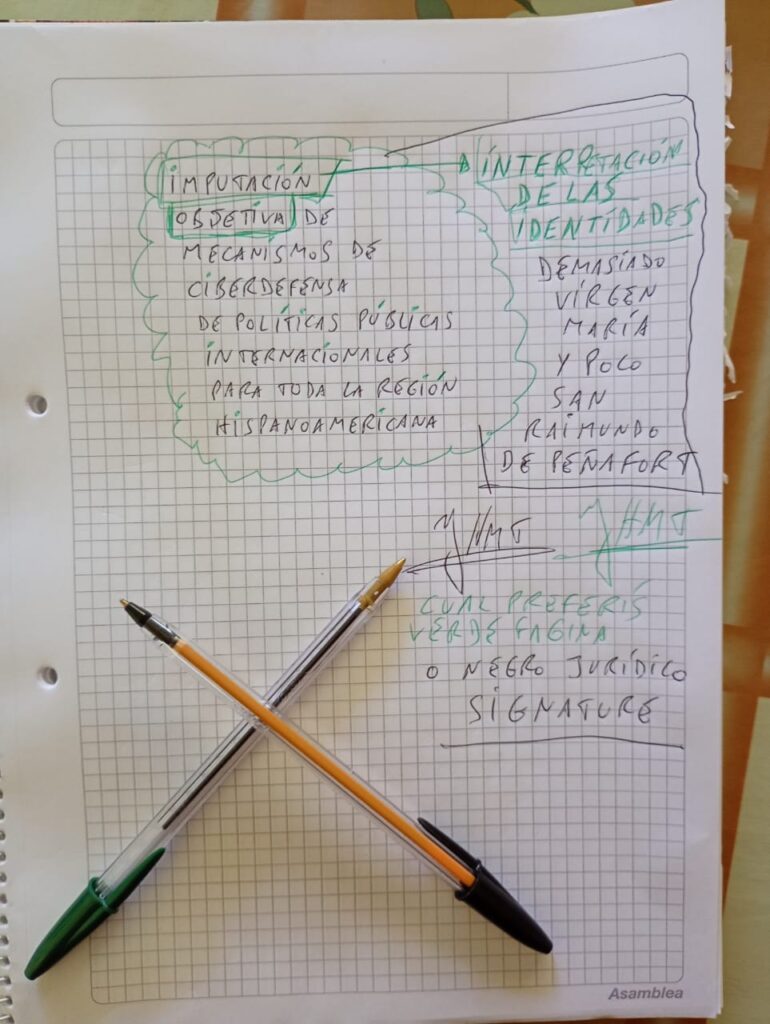 IMPUTACIÓN
OBJETIVA DE
MECANISMOS DE
CIBERDEFENSA
DE POLÍTICAS PÚBLICAS
INTERNACIONALES
PARA TODA LA REGIÓN
HISPANOAMERICANA
INTERPETACIÓN
DE LAS
IDENTIDADES
DEMASIADO
VIRGEN
MARÍA
Y POCO
SAN
RAIMUNDO
DE PEÑAFORT
CUAL PREFERÍS
VERDE FAGINA
O NEGRO JURÍDICO
SIGNATURE
Asamblea